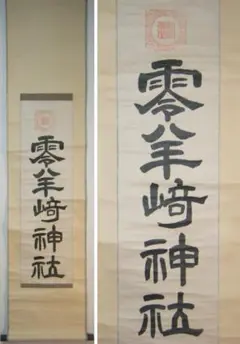 零羊﨑神社
零羊﨑神社